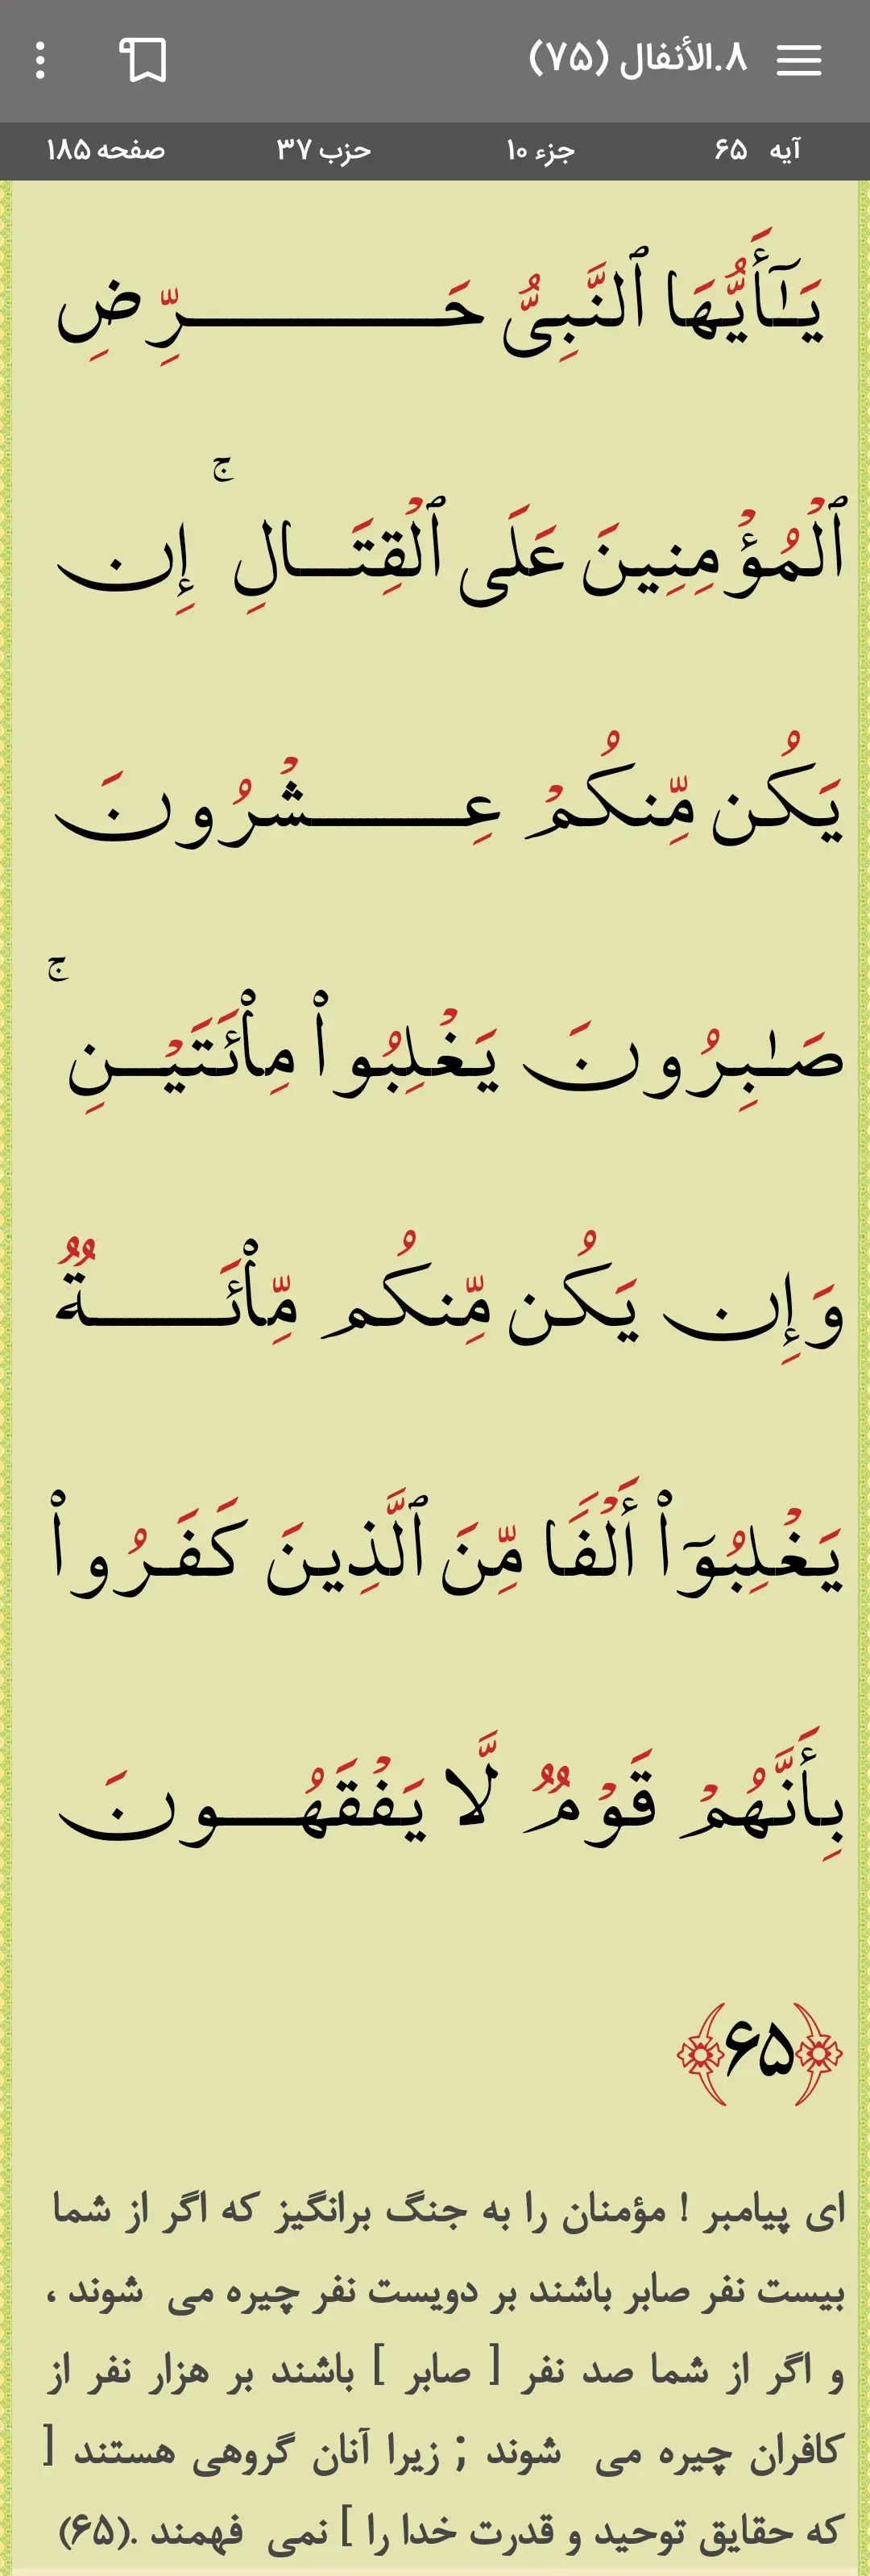 ۸.الأنفال (۷۵)
آیه ۶۵ جزء ۱۰ حزب ۳۷ صفحه ۱۸۵
يَـٰٓأَيُّهَا ٱلنَّبِىُّ حَـــرِّضِ
ٱلْمُؤْمِنِينَ عَلَى ٱلْقِتَـالِ ۚ إِن
يَكُن مِّنكُمْ عِـــشْرُونَ
صَـٰبِرُونَ يَغْلِبُوا۟ مِا۟ئَتَيْـنِ ۚ
وَإِن يَكُن مِّنكُم مِّا۟ئَـــةٌ
يَغْلِبُوٓا۟ أَلْفًا مِّنَ ٱلَّذِينَ كَفَرُوا۟
بِأَنَّهُمْ قَوْمٌ لَّا يَفْقَهُـونَ
﴿۶۵﴾
ای پیامبر ! مؤمنان را به جنگ برانگیز که اگر از شما
بیست نفر صابر باشند بر دویست نفر چیره می شوند ،
و اگر از شما صد نفر [ صابر ] باشند بر هزار نفر از
کافران چیره می شوند ; زیرا آنان گروهی هستند [
که حقایق توحید و قدرت خدا را ] نمی فهمند .(۶۵)